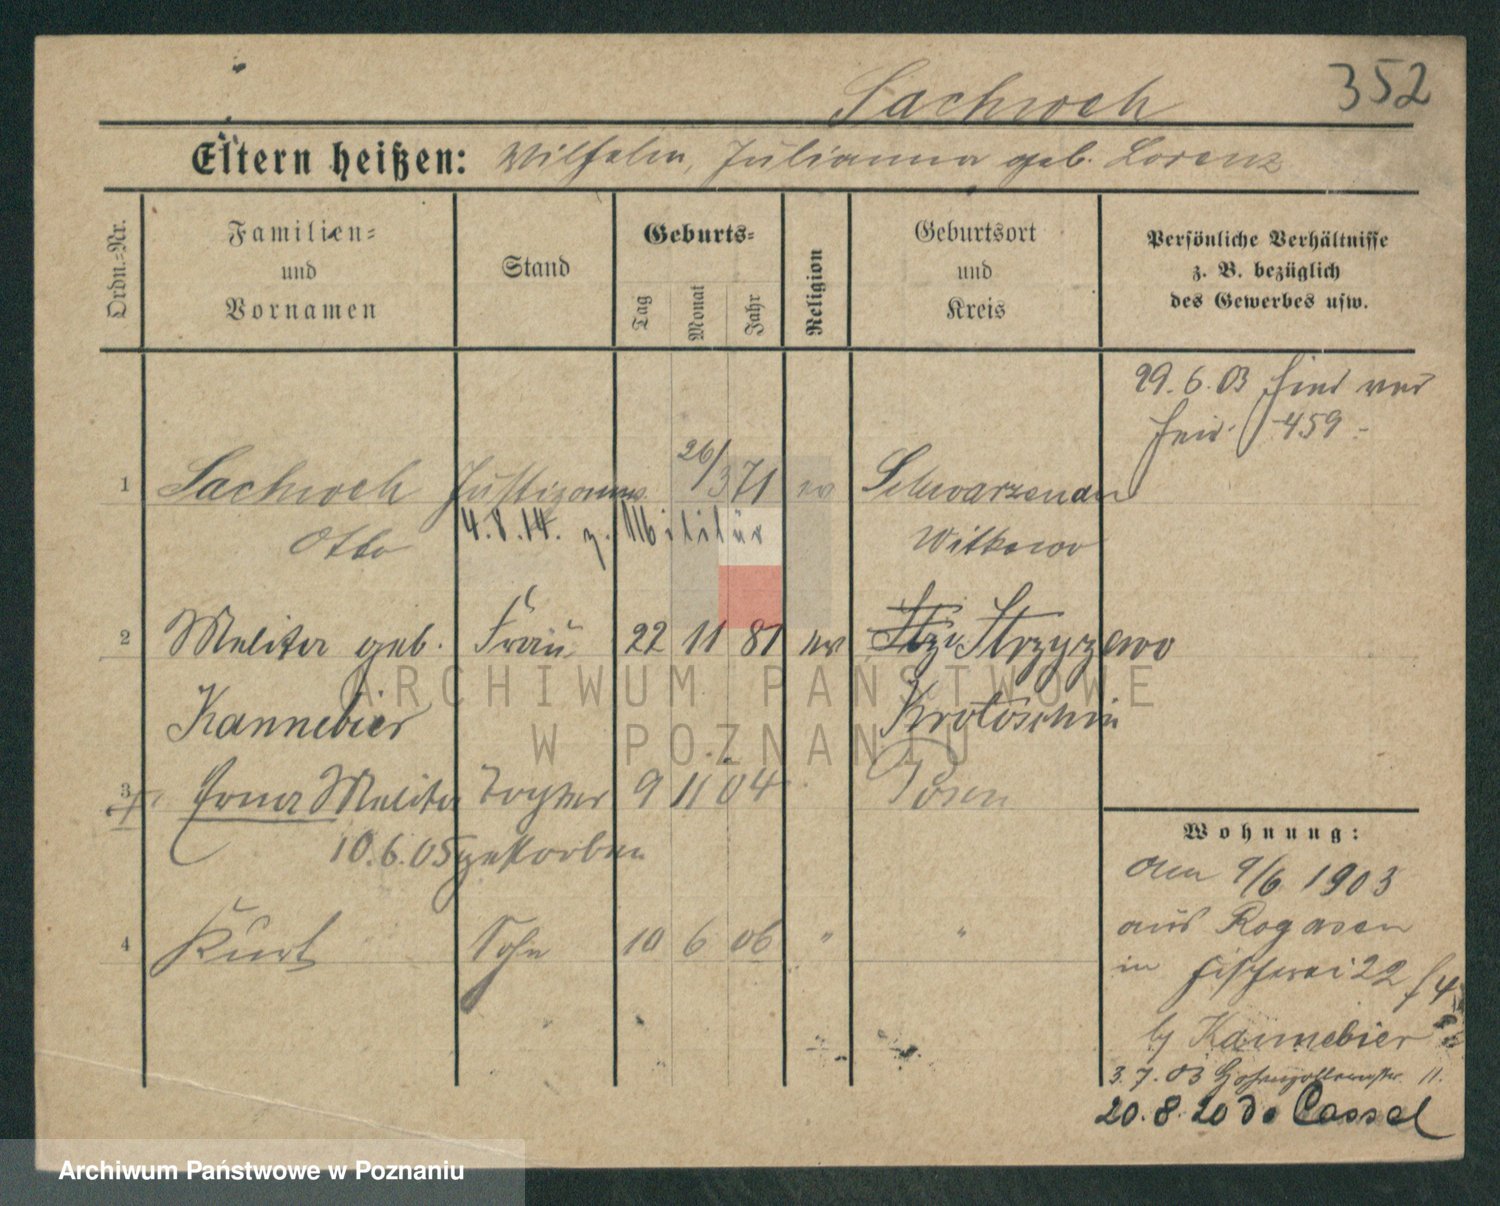 352
Sachweh
Eltern heißen: Wilhelm, Julianna geb. Lorenz
Ordn.-Nr.
Familien- und Vornamen
Stand
Geburts-
Tag
Monat
Jahr
Religion
Geburtsort und Kreis
Persönliche Verhältnisse
z. B. bezüglich
des Gewerbes usw.
29.6.03
459
1 Sachweh 26/3 71 ev Schwarzenau
Otto 4.8.14. z. Militär Witkowo
2 Melitta geb. Frau 22 11 81 ev Strzyzewo
Kannebier Krotoschin
3 Erna Melitta Tochter 9 11 04 Posen
10.6.05 gestorben
4 Kurt Sohn 10 6 06 " "
Wohnung:
Am 9/6 1903
aus Rogasen
in Fischerei 22
b/ Kannebier
3.7.03 Hohenzollernstr. 11.
20.8.20 Cassel
ARCHIWUM PAŃSTWOWE
W POZNANIU
Archiwum Państwowe w Poznaniu